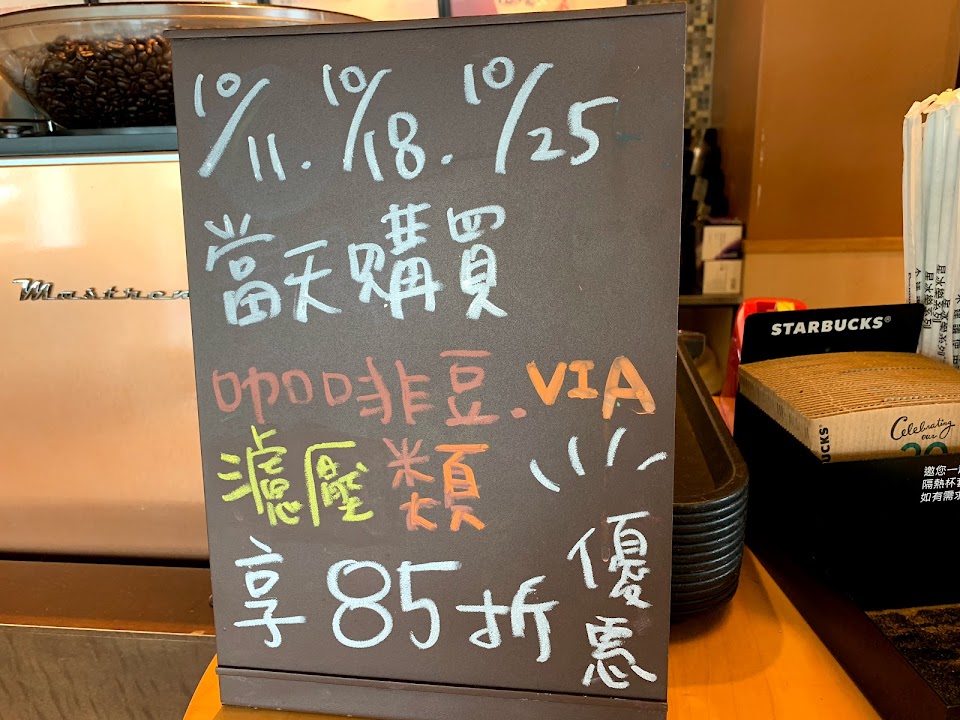 10/11. 10/18. 10/25
當天購買
咖啡豆.VIA
濾壓類
享85折
優惠
Mastren
STARBUCKS®
Celebrating
our
邀您一
隔熱杯
如有需求